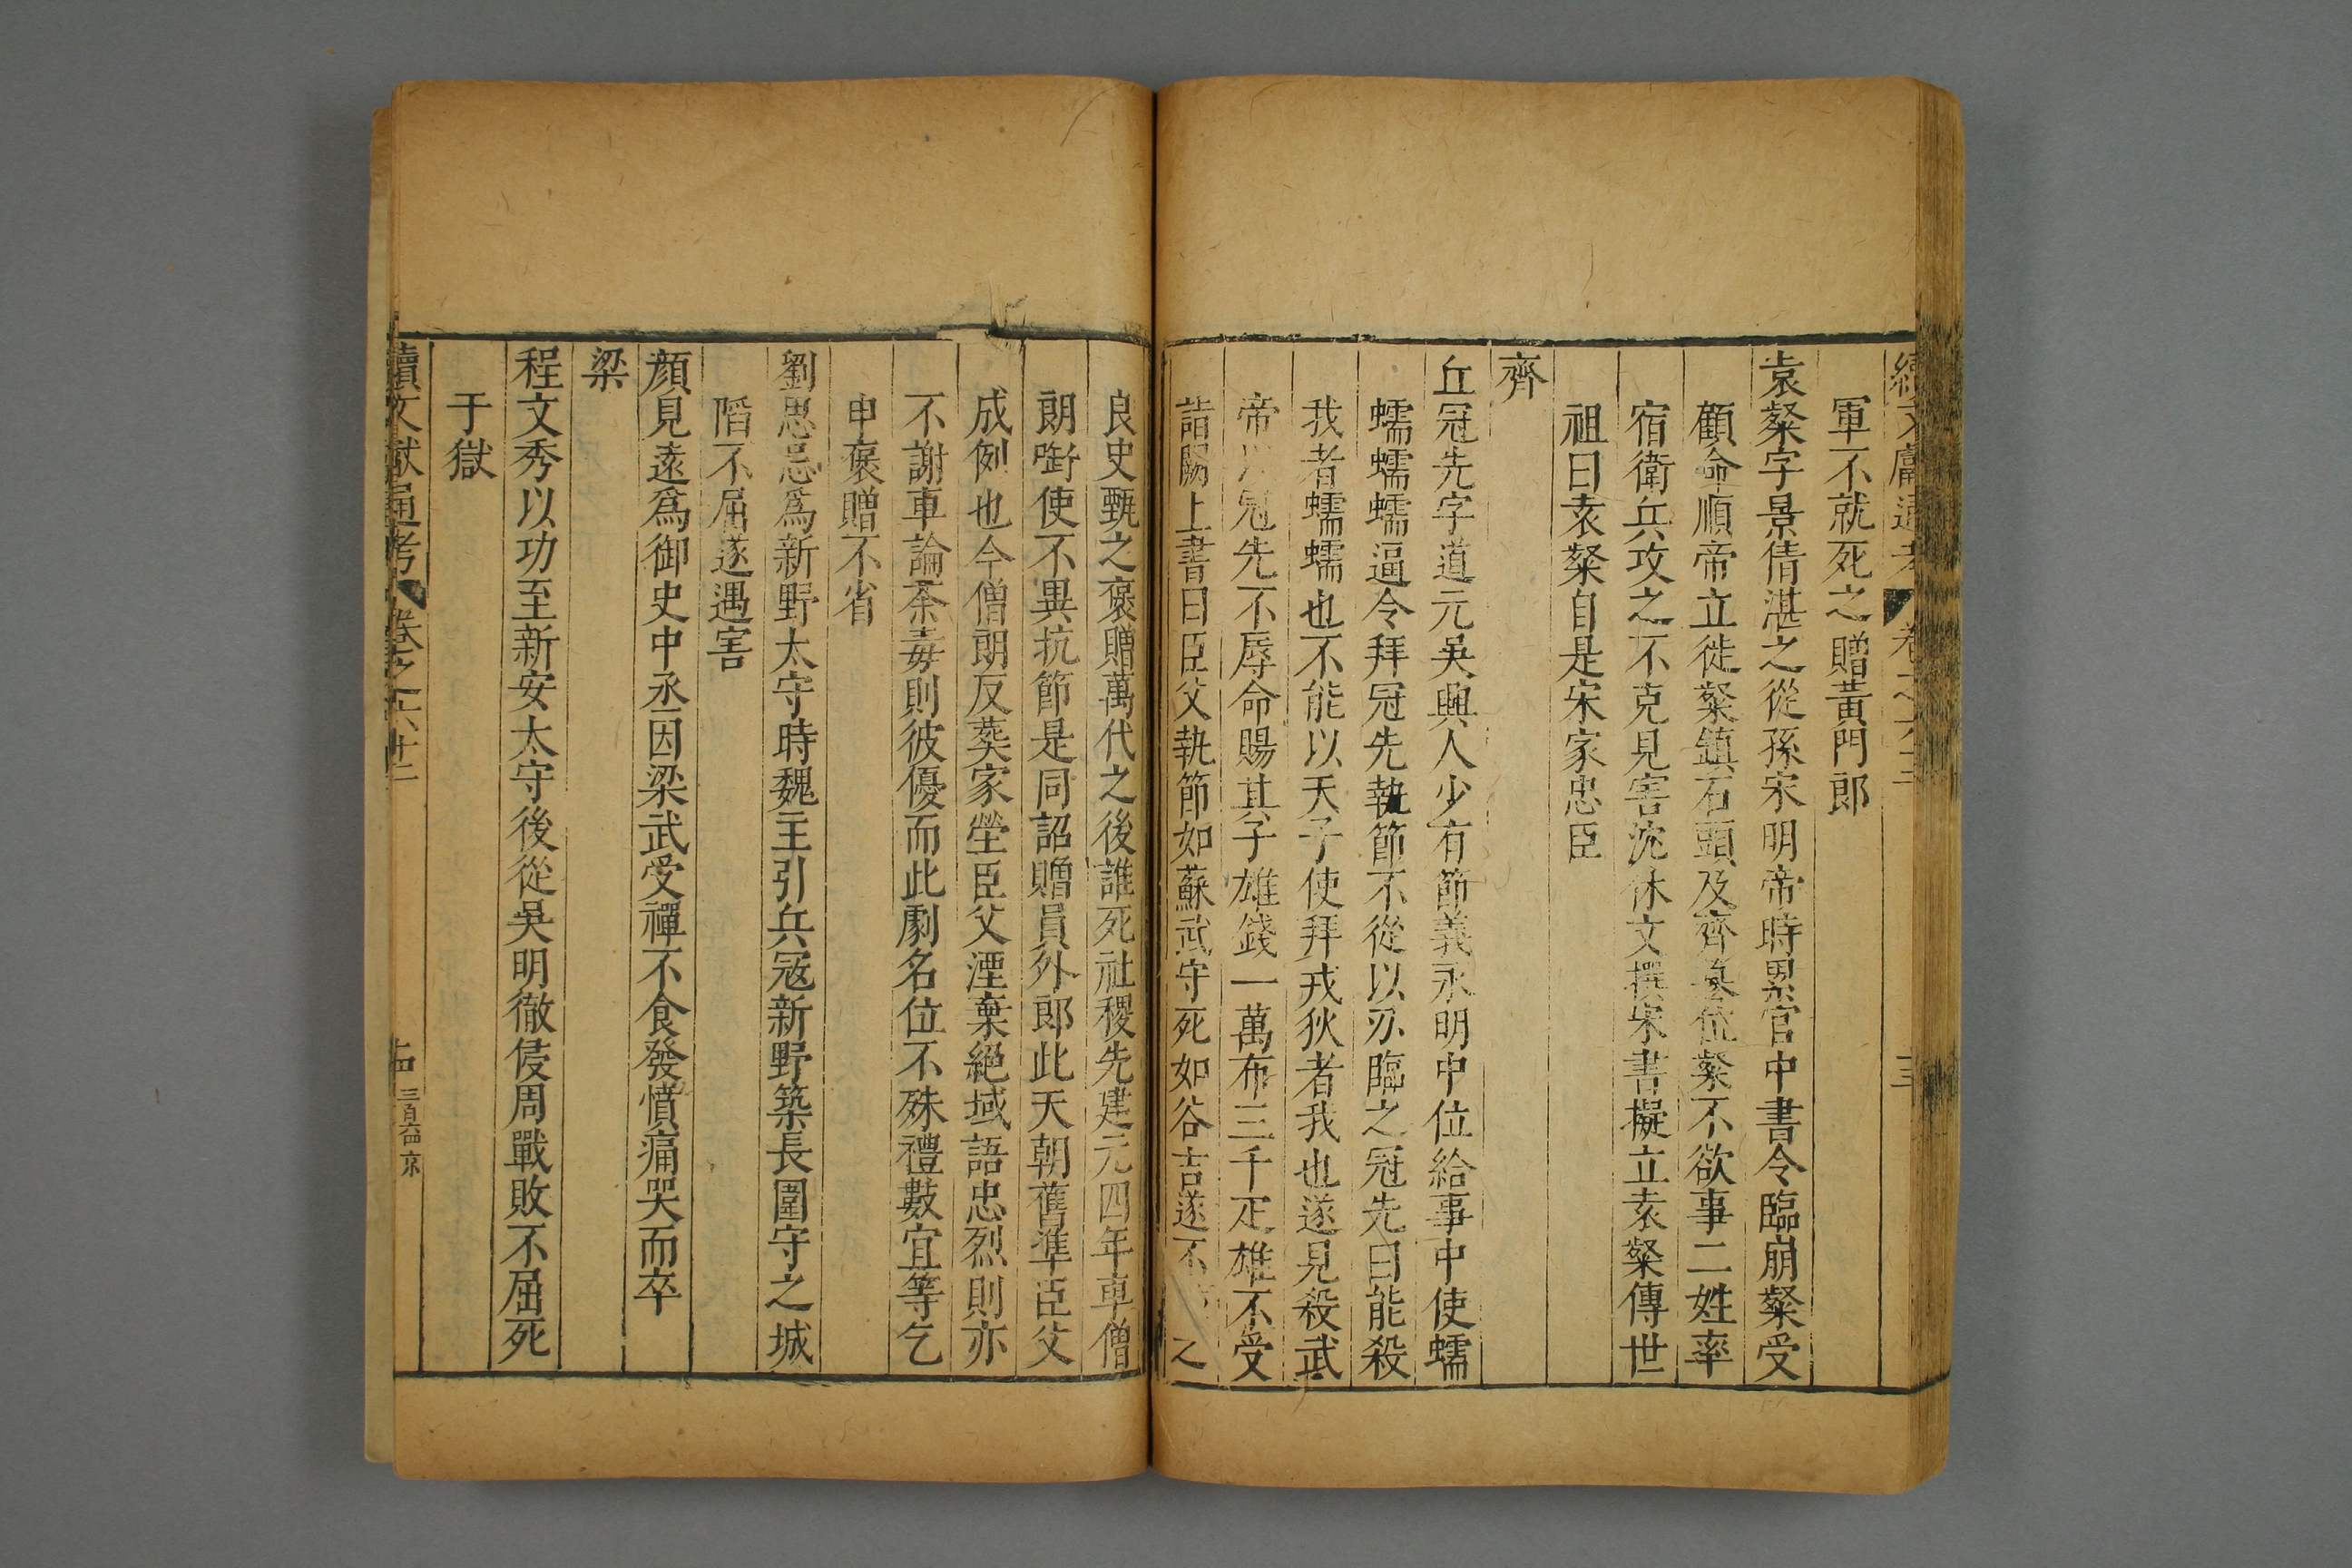 續文獻通考 卷之六十二 三
軍不就死之贈黃門郎
袁粲字景倩湛之從孫宋明帝時累官中書令臨崩粲受
顧命順帝立徙粲鎮石頭及齊簒位粲不欲事二姓率
宿衛兵攻之不克見害沈休文撰宋書擬立袁粲傳世
祖曰袁粲自是宋家忠臣
齊
丘冠先字道元吳興人少有節義永明中位給事中使蠕
蠕蠕蠕逼令拜冠先執節不從以刃臨之冠先曰能殺
我者蠕蠕也不能以天子使拜戎狄者我也遂見殺武
帝以冠先不辱命賜其子雄錢一萬布三千疋雄不受
詣闕上書曰臣父執節如蘇武守死如谷吉遂不 之
良史甄之褒贈萬代之後誰死社稷先建元四年車僧
朗啣使不異抗節是同詔贈員外郎此天朝舊準臣父
成例也今僧朗反葬家塋臣父湮棄絕域語忠烈則亦
不謝車論荼毒則彼優而此劇名位不殊禮數宜等乞
申褒贈不省
劉思忌爲新野太守時魏主引兵寇新野築長圍守之城
陷不屈遂遇害
顏見遠爲御史中丞因梁武受禪不食發憤痛哭而卒
梁
程文秀以功至新安太守後從吳明徹侵周戰敗不屈死
于獄
續文獻通考 卷之六十二 四 三百六四 京